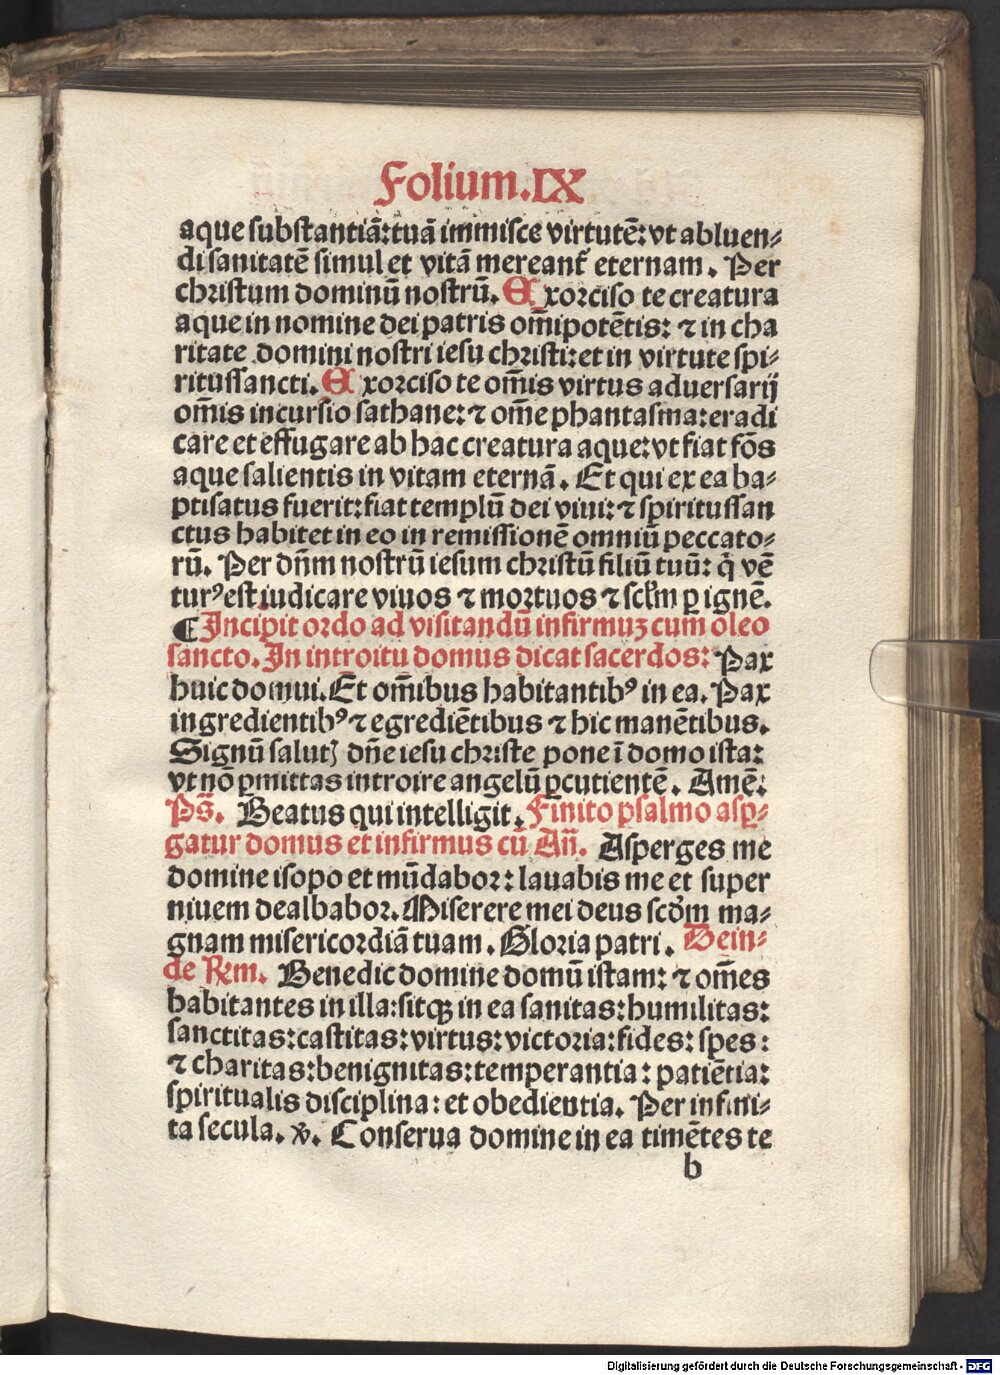 Folium.IX
aque substantiā:tuā immisce virtutē:vt abluen⸗
di sanitatē simul et vitā mereant᷑ eternam. Per
christum dominū nostrū. Exorciso te creatura
aque in nomine dei patris om̄ipotētis: ⁊ in cha
ritate domini nostri iesu christi:et in virtute spi⸗
ritussancti. Exorciso te om̄is virtus aduersarij
om̄is incursio sathane:⁊ om̄e phantasma:eradi
care et effugare ab hac creatura aque:vt fiat fōs
aque salientis in vitam eternā. Et qui ex ea ba⸗
ptisatus fuerit:fiat templū dei viui:⁊ spiritussan
ctus habitet in eo in remissionē omniū peccato⸗
rū. Per dn̄m nostrū iesum christū filiū tuū: q̄ vē
turꝰ est iudicare viuos ⁊ mortuos ⁊ scl̄m ꝑ ignē.
¶ Incipit ordo ad visitandū infirmuꝫ cum oleo
sancto. In introitu domus dicat sacerdos: Pax
huic domui. Et om̄ibus habitantibꝰ in ea. Pax
ingredientibꝰ ⁊ egrediētibus ⁊ hic manētibus.
Signū salutꝭ dn̄e iesu christe pone ī domo ista:
vt nō ꝑmittas introire angelū ꝑcutientē. Amē:
Ps̄. Beatus qui intelligit. Finito psalmo asꝑ⸗
gatur domus et infirmus cū An̄. Asperges me
domine isopo et mūdabor: lauabis me et super
niuem dealbabor. Miserere mei deus scd̄m ma⸗
gnam misericordiā tuam. Gloria patri. Dein⸗
de Rm̄. Benedic domine domū istam: ⁊ om̄es
habitantes in illa:sitqꝫ in ea sanitas:humilitas:
sanctitas:castitas:virtus:victoria:fides: spes:
⁊ charitas:benignitas:temperantia: patiētia:
spiritualis disciplina: et obedientia. Per infini⸗
ta secula. ꝟ. Conserua domine in ea timētes te
b
Digitalisierung gefördert durch die Deutsche Forschungsgemeinschaft - DFG